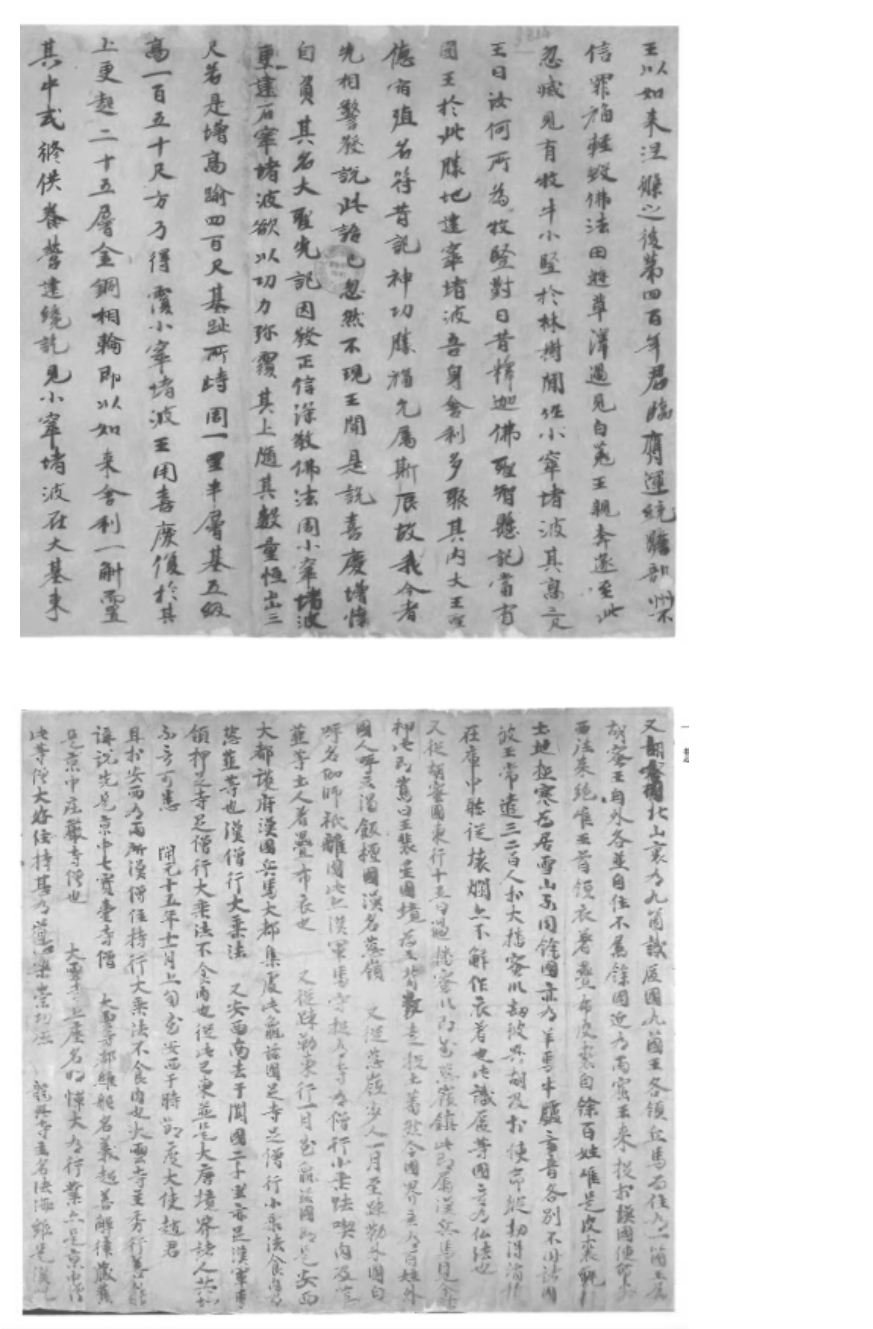 王以如來涅槃之後第四百年君臨膺運統贍部州不
信罪福輕毀佛法田遊草澤遇見白菟王親奔逐至此
忽滅見有牧牛小竪於林樹間作小窣堵波其高三尺
王曰汝何所為牧竪對曰昔釋迦佛聖智懸記當有
國王於此勝地建窣堵波吾身舍利多聚其內大王聖
德宿殖名符昔記神功勝福允屬斯辰故我今者
先相警發說此語已忽然不現王聞是說喜慶增懷
自負其名大聖先記因發正信深敬佛法周小窣堵波
更建石窣堵波欲以功力弥覆其上隨其數量恒出三
尺若是增高踰四百尺基趾所峙周一里半層基五級
高一百五十尺方乃得覆小窣堵波王用喜慶復於其
上更起二十五層金銅相輪即以如來舍利一斛置
其中式修供養營建纔訖見小窣堵波在大基東
又胡蜜國北山裏有九箇識匿國九箇王各領兵馬而住有一箇王屬
胡蜜王自外各並自住不屬餘國近有兩窟王來投於漢國使命安
西往來絕唯王首領衣著疊布皮裘自餘百姓唯是皮裘氈
土地極寒為居雪山不同餘國亦有羊馬牛驢言音各別不同諸國
彼王常遣三二百人於大播蜜川劫彼興胡及於使命縱劫得絹積
在庫中聽從壞爛亦不解作衣著也此識匿等國無有仏法也
又從胡蜜國東行十五日過播蜜川即至葱嶺鎮此即屬漢兵馬見今鎮
押此即舊日王裴星國境為王背叛走投土蕃然今國界無有百姓外
國人呼云渴飯檀國漢名葱嶺 又從葱嶺步入一月至踈勒外國自
呼名伽師祇離國此亦漢軍馬守捉有寺有僧行小乘法喫肉及葱
韮等土人著疊布衣也 又從踈勒東行一月至龜茲國即是安西
大都護府漢國兵馬大都集處此龜茲國足寺足僧行小乘法食肉及
葱韮等也漢僧行大乘法 又安西南去于闐國二千里亦足漢軍馬
領押足寺足僧行大乘法不食肉也從此已東並是大唐境界諸人共知
不言可悉 開元十五年十一月上旬至安西于時節度大使趙君
且於安西有兩所漢僧住持行大乘法不食肉也大雲寺主秀行善能
講說先是京中七寶臺寺僧 大雲寺都維那名義超善解律藏舊
是京中庄嚴寺僧也 大雲寺上座名明惲大有行業亦是京中僧
此等僧大好住持甚有道心樂崇功德 龍興寺主名法海雖是漢兒